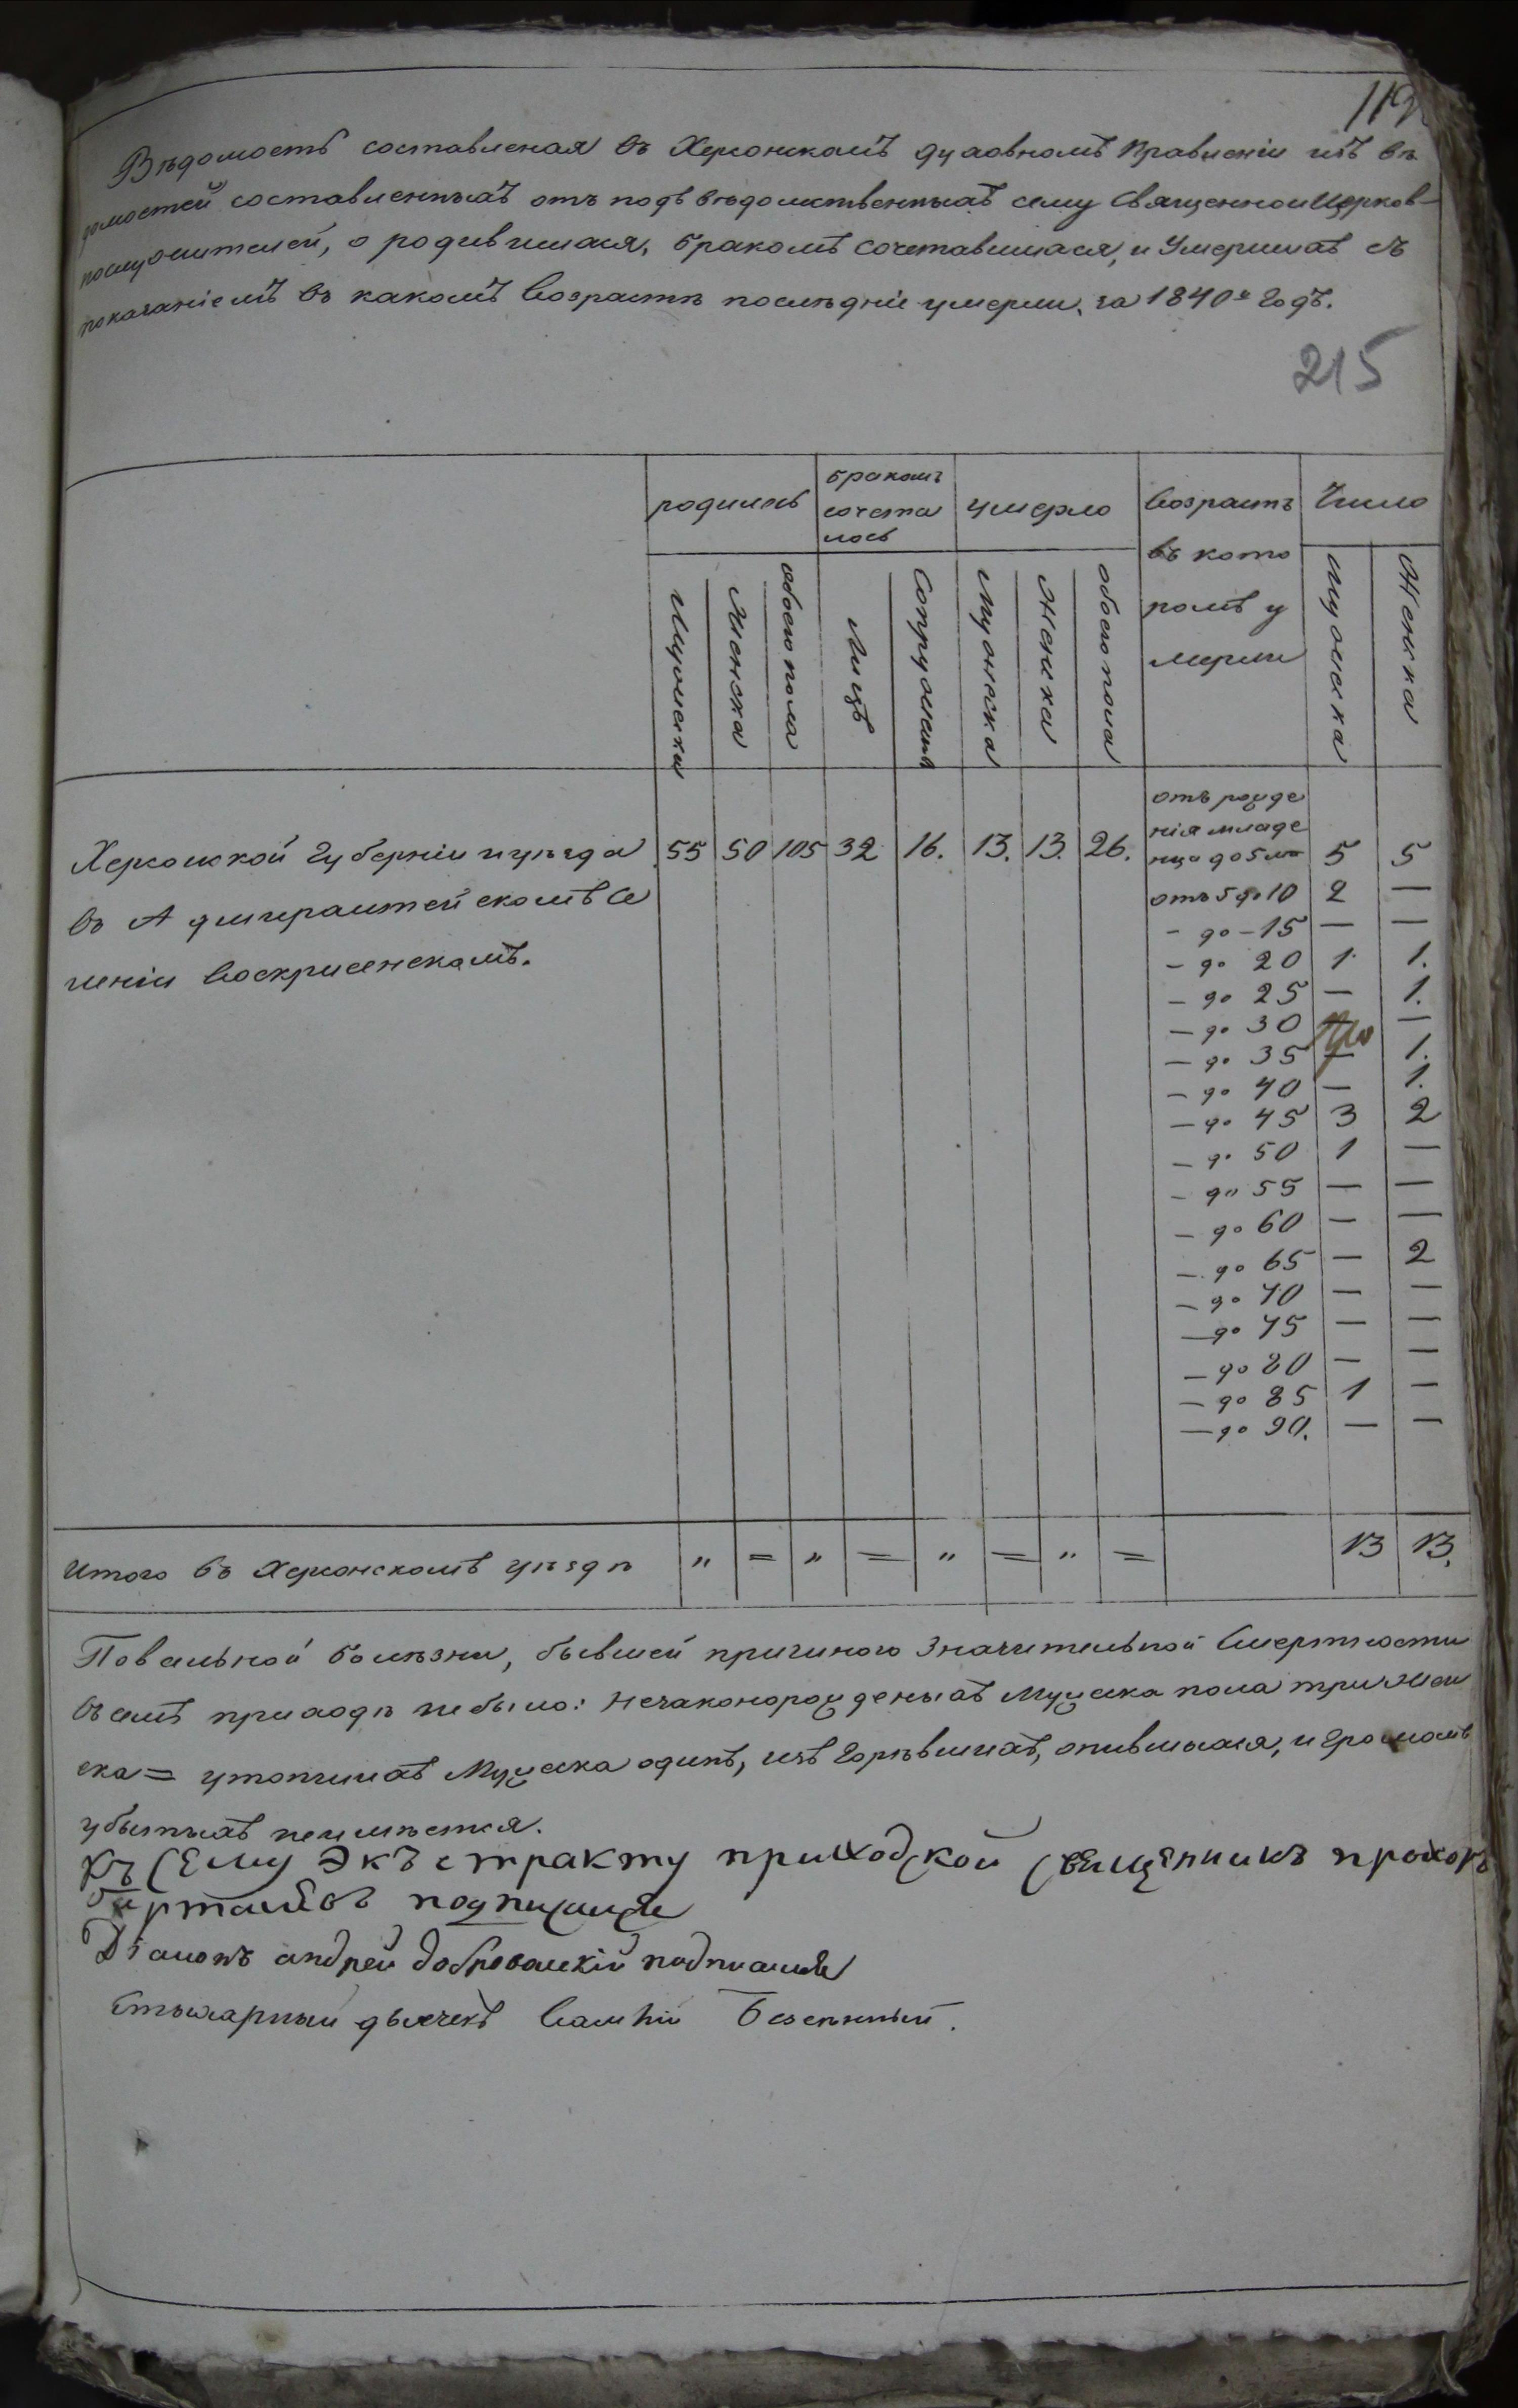 Вѣдомость составленая въ Херсонскомъ духовномъ Правленіи изъ вѣ
домостей составленныхъ отъ подъ вѣдомственныхъ сему Священноцерков-
нослужителей, о родившихся, бракомъ сочетавшихся, и Умершихъ съ
показаніемъ въ какомъ возрастѣ послѣдніе умерли, за 1840й годъ.
215
родилось
бракомъ
сочета
лось
умерло
возрастъ
въ кото
ромъ у
мерли
Число
Мужеска
Женска
обоего пола
Лицъ
Супружествъ
Мужеска
Женска
обоего пола
Мужеска
Женска
Херсонской Губерніи и уѣзда 55 50 105 32 16. 13. 13. 26.
въ Адмиралтейскомъ Се
леніи Воскрисенскомъ.
отъ рожде
нія младе
нца до 5 ле 5 5
отъ 5 до 10 2 —
- до - 15 — —
- до 20 1 1.
- до 25 — 1.
- до 30 — —
- до 35 — 1.
- до 40 — 1.
- до 45 3 2
- до 50 1 —
- до 55 — —
- до 60 — —
- до 65 — 2
- до 70 — —
- до 75 — —
- до 80 — —
- до 85 1 —
- до 90. — —
Итого въ Херсонскомъ уѣздѣ " = " = " = " = 13 13.
Повальной болѣзни, бывшей причиною Значительной Смертности
въ семъ приходѣ небыло: Незаконорожденыхъ Мужеска пола три Жен
ска = утопшихъ Мужеска одинъ, изъ Горѣвшихъ, опившихся, и Громомъ
убытыхъ неимѣется.
Къ Сему Экъстракту приходской Священникъ прохоръ
подписался
Діаконъ андрей Добровольскій подписался
Стихарный дьячекъ